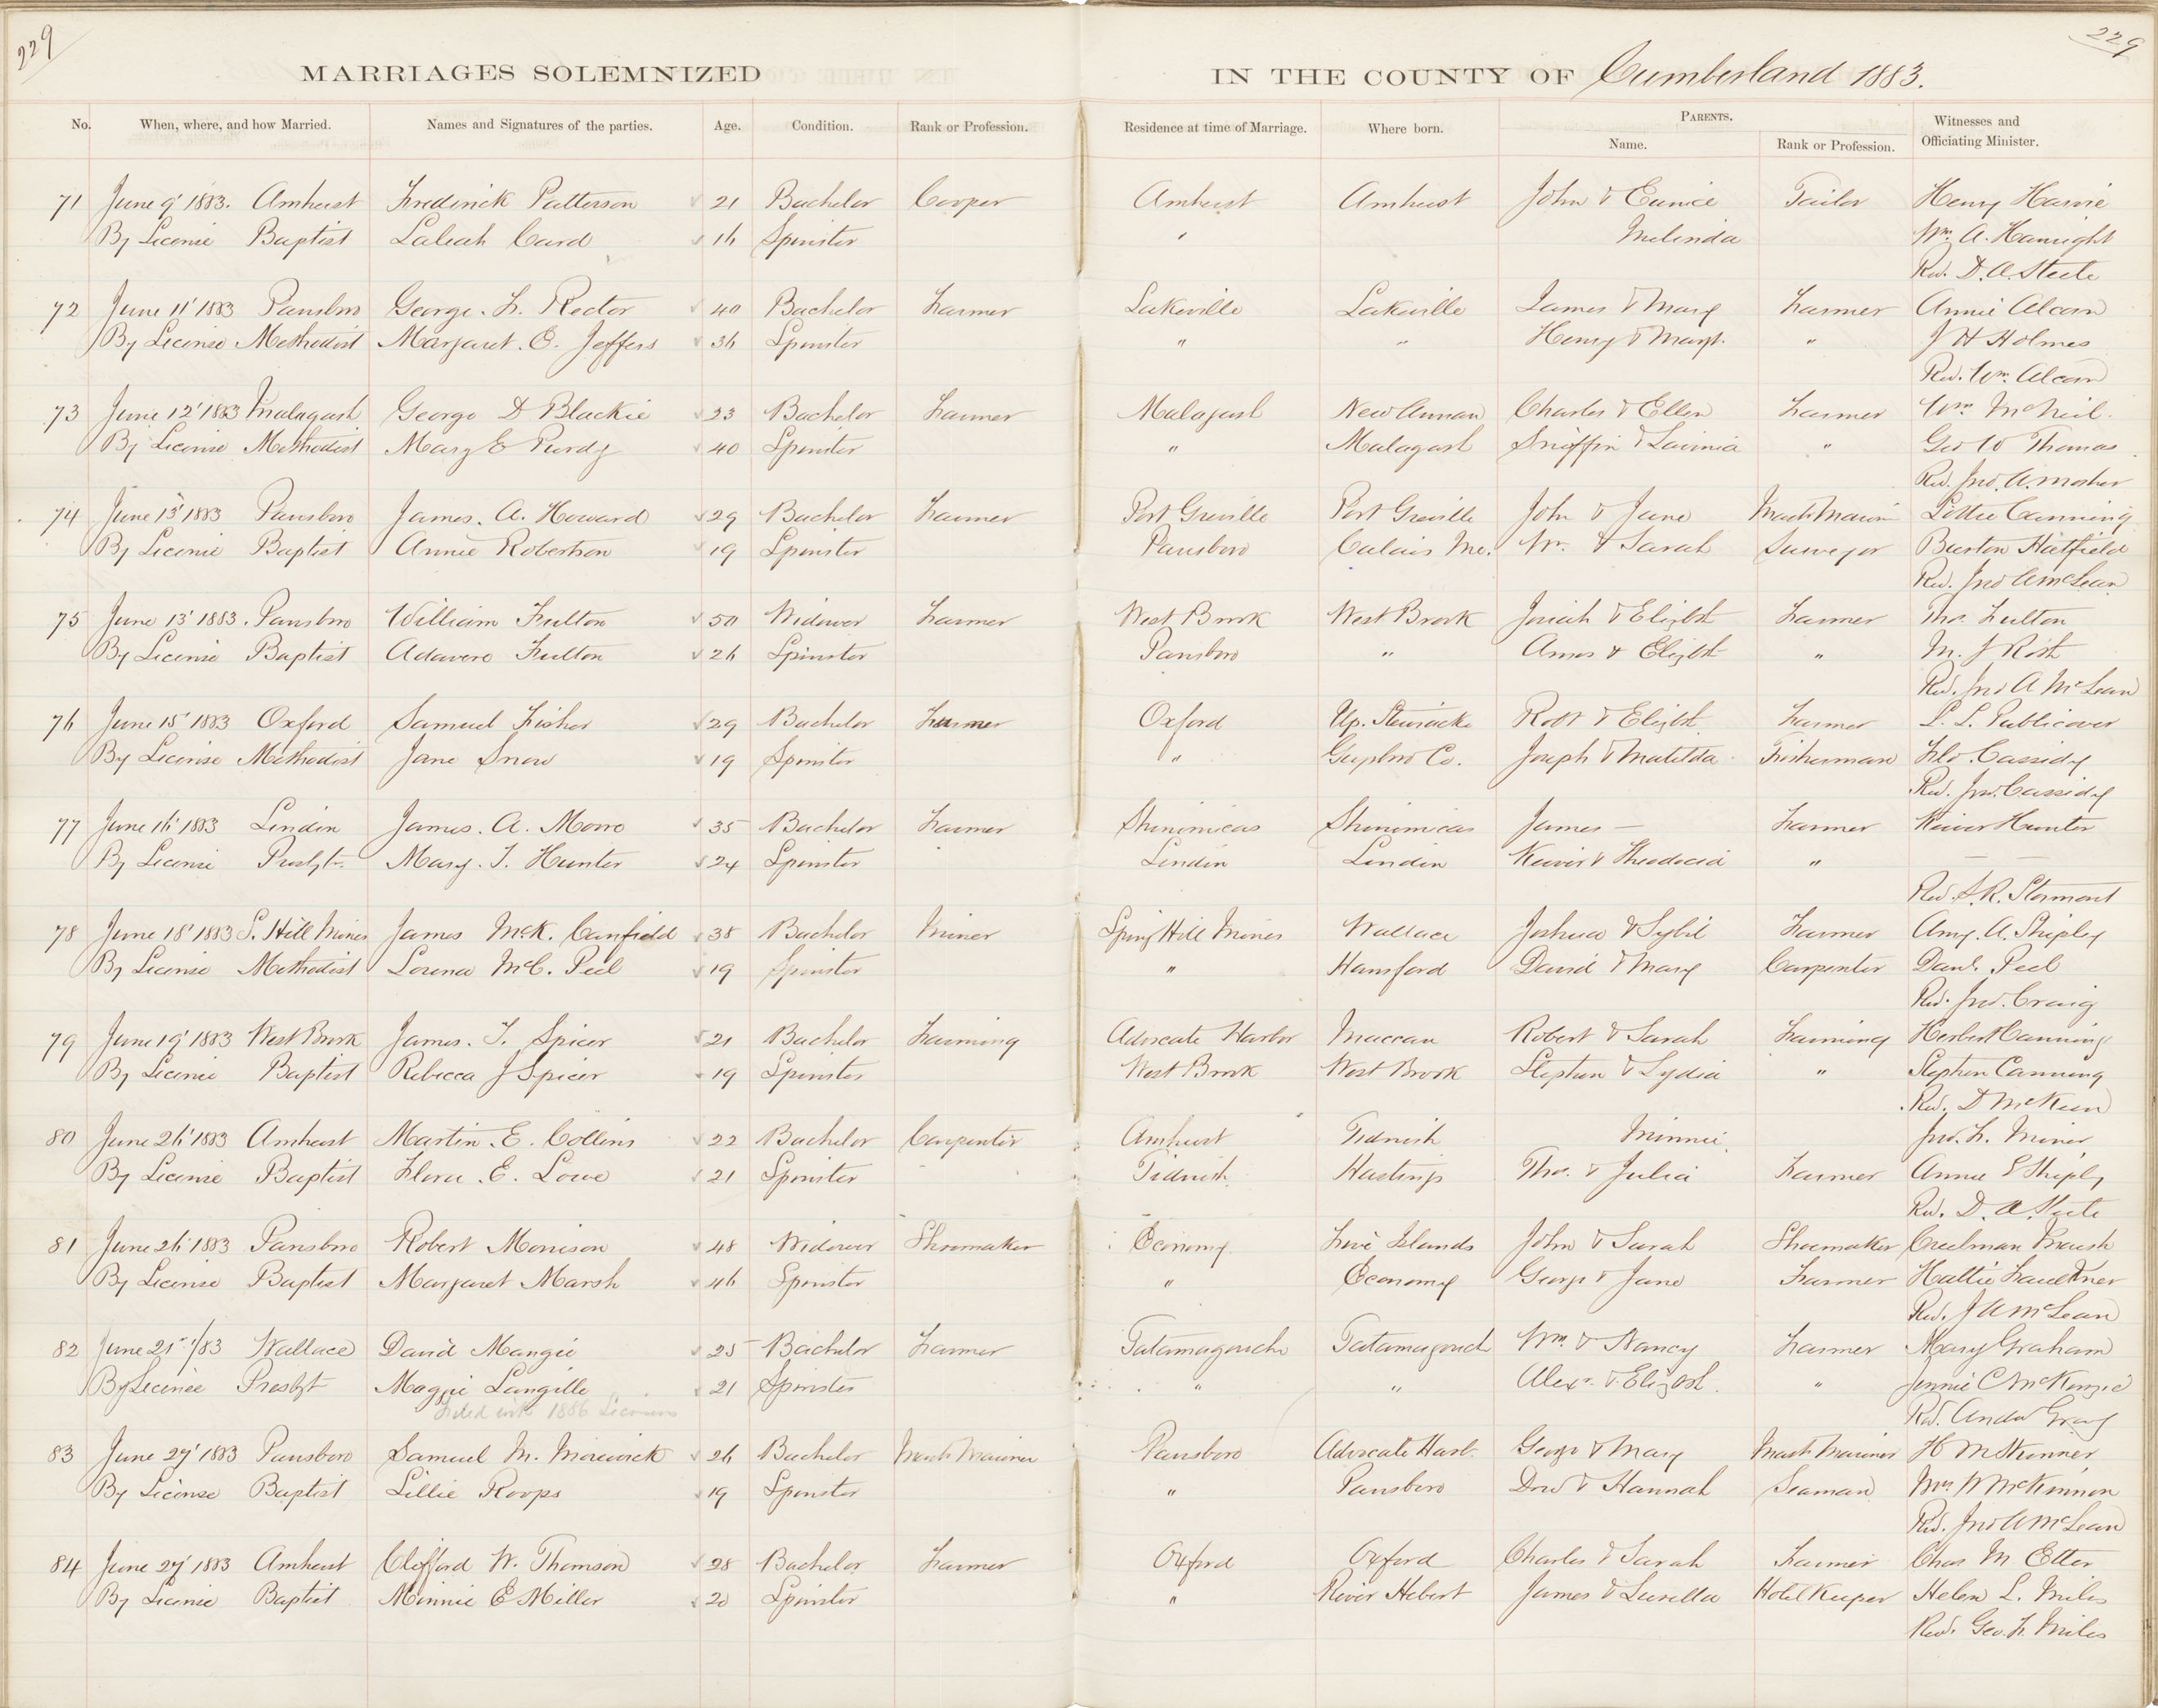 229
229
MARRIAGES SOLEMNIZED IN THE COUNTY OF Cumberland 1883.
No. When, where, and how Married. Names and Signatures of the parties. Age. Condition. Rank or Profession. Residence at time of Marriage. Where born. PARENTS. Witnesses and
Name. Rank or Profession. Officiating Minister.
71 June 9' 1883. Amherst Frederick Patterson 21 Bachelor Cooper Amherst Amherst John & Eunice Tailor Henry Harvie
By License Baptist Laleah Card 16 Spinster " Melinda Wm. A. Hamright
Rev. D. A. Steele
72 June 11' 1883 Parrsboro George. F. Rector 40 Bachelor Farmer Lakeville Lakeville James & Mary Farmer Annie Alcorn
By License Methodist Margaret. E. Jeffers 36 Spinster " " Henry & Margt. " J H Holmes
Rev. Wm. Alcorn
73 June 12' 1883 Malagash George D Blackie 23 Bachelor Farmer Malagash New Annan Charles & Ellen Farmer Wm McNeil.
By License Methodist Mary E Purdy 40 Spinster " Malagash & Lavinia " Geo W Thomas
Rev. Jno. A. Mosher
74 June 13' 1883 Parrsboro James. A. Howard 29 Bachelor Farmer Port Greville Port Greville John & Jane Mast Marin Lottie Canning
By License Baptist Annie Robertson 19 Spinster Parrsboro Calais Me. Wm. & Sarah Surveyor Burton Hatfield
Rev. Jno A McLean
75 June 13' 1883. Parrsboro William Fulton 50 Widower Farmer West Brook West Brook Josiah & Elizbth Farmer Tho. Fulton
By License Baptist Fulton 26 Spinster Parrsboro " Amos & Elizbth " M. J
Rev. Jno A McLean
76 June 15' 1883 Oxford Samuel Fisher 29 Bachelor Farmer Oxford Up. Stewiacke Robt & Elizbth. Farmer L. L. Publicover
By License Methodist Jane Snow 19 Spinster " Guysboro Co. Joseph & Matilda Fisherman Flo. Cassidy
Rev. Jno. Cassidy
77 June 16' 1883 Linden James. A. Morro 35 Bachelor Farmer Shinimicas Shinimicas James — Farmer Hunter
By License Presbyt. Mary. J. Hunter 24 Spinster Linden Linden & Theodocia " — —
Rev. S. R. Stormont
78 June 18' 1883 S. Hill Mines James McK. Canfield 38 Bachelor Miner Spring Hill Mines Wallace Joshua & Sybil Farmer Amy. A. Shipley
By License Methodist Lorena McC. Peel 19 Spinster " Hansford David & Mary Carpenter Danl. Peel
Rev. Jno. Craig
79 June 19' 1883 West Brook James. T. Spicer 21 Bachelor Farming Advocate Harbor Maccan Robert & Sarah Farming Herbert Canning
By License Baptist Rebecca J Spicer 19 Spinster West Brook West Brook Stephen & Lydia " Stephen Canning
Rev. D McKeen
80 June 26' 1883 Amherst Martin. E. Collins 22 Bachelor Carpenter Amherst Tidnish Minnie. Jno. F. Miner
By License Baptist Flora. E. Lowe 21 Spinster Tidnish Hastings Tho. & Julia Farmer Annie E Shiply
Rev. D. A. Steele
81 June 26' 1883 Parrsboro Robert Morrison 48 Widower Shoemaker Economy Five Islands John & Sarah Shoemaker Creelman Marsh
By License Baptist Margaret Marsh 46 Spinster " Economy George & Jane Farmer Hattie Faulkner
Rev. J A McLean
82 June 21st /83 Wallace David Mangie 25 Bachelor Farmer Tatamagouche Tatamagouch Wm. & Nancy Farmer Mary Graham
By License Presbyt Maggie Langille 21 Spinster " " Alexr. & Elizbth. " Jennie C McKenzie
Filed with 1886 Licenses Rev. Andw Gray
83 June 27' 1883 Parrsboro Samuel M. Merwick 26 Bachelor Mast Mariner Parrsboro Advocate Harb. George & Mary Mast Mariner H M Skinner
By License Baptist Lillie Roops 19 Spinster " Parrsboro Dow & Hannah Seaman Mrs W McKinnon
Rev. Jno A McLean
84 June 27' 1883 Amherst Clifford W. Thomson 28 Bachelor Farmer Oxford Oxford Charles & Sarah Farmer Chas M Etter
By License Baptist Minnie E Miller 20 Spinster " River Hebert James & Luella Hotel Keeper Helen L. Miles
Rev. Geo. F. Miles